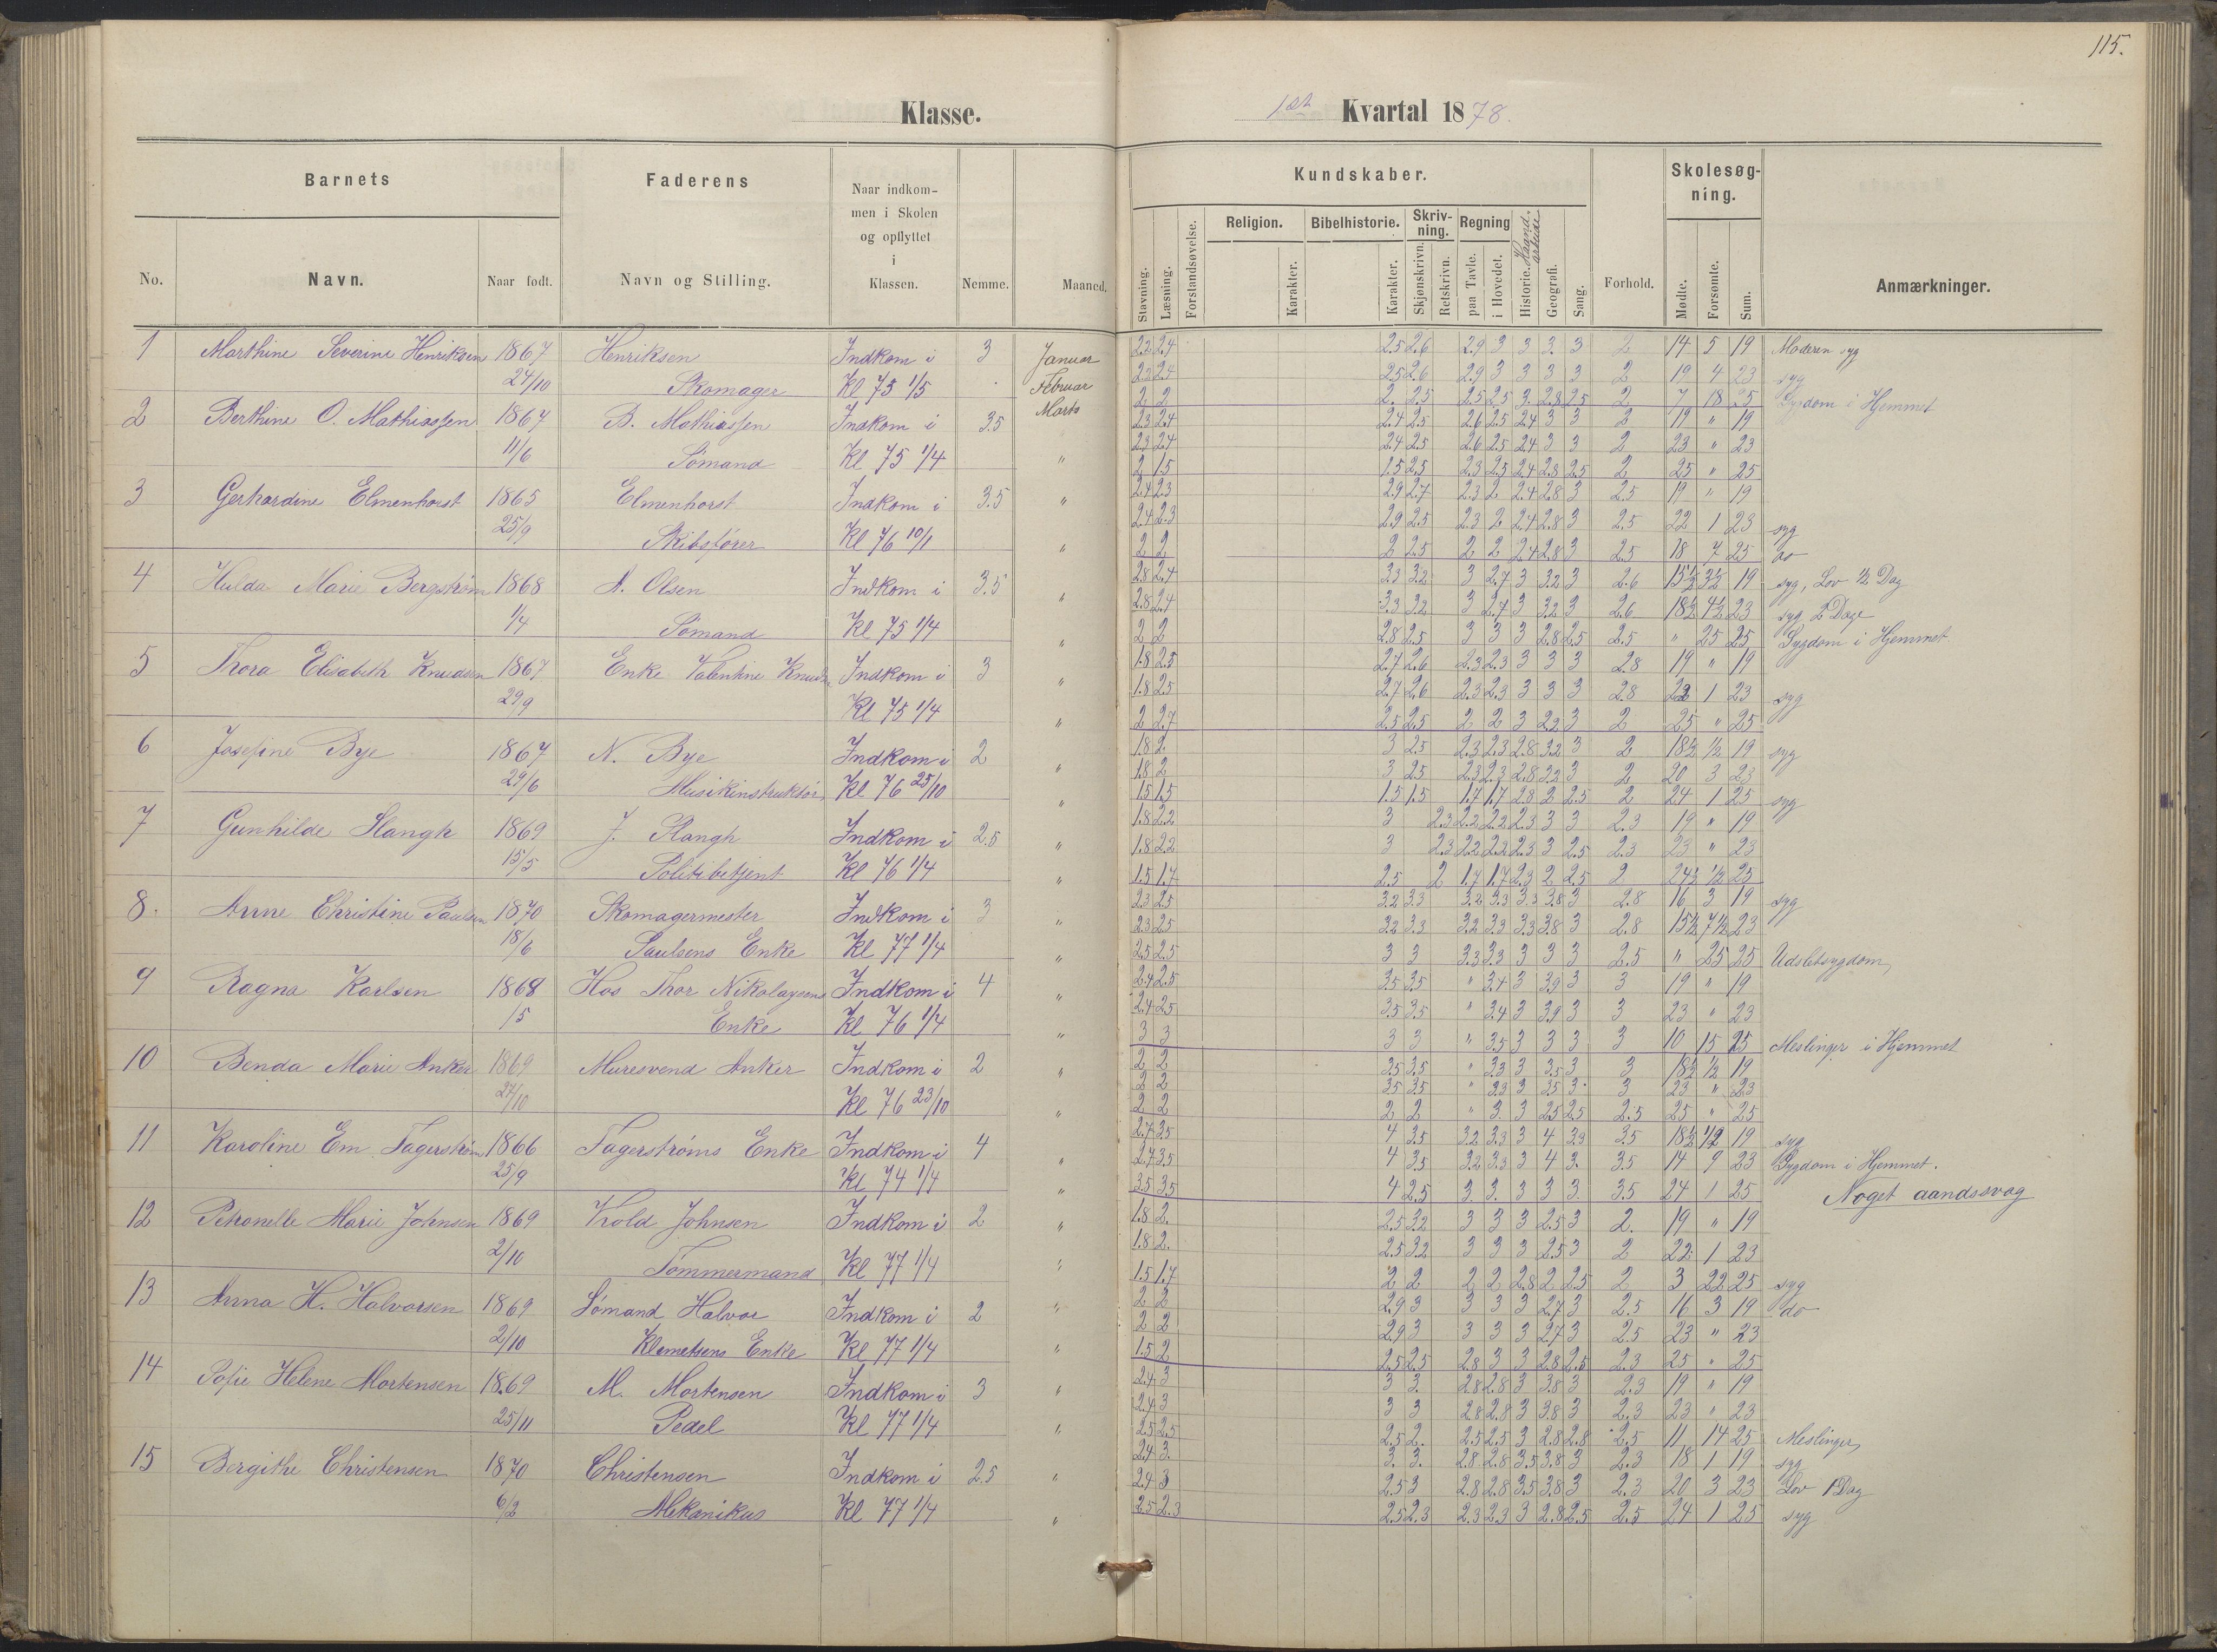 115.
Klasse. 1ste Kvartal 1878.
Barnets Faderens Naar indkommen i Skolen og opflyttet i Klassen. Nemme. Maaned. Kundskaber. Forhold. Skolesøgning. Anmærkninger.
No. Navn. Naar født. Navn og Stilling. Stavning. Læsning. Forstandsøvelse. Religion. Karakter. Bibelhistorie. Karakter. Skrivning. Skjønskrivn. Retskrivn. Regning paa Tavle. i Hovedet. Historie. Haandarbeide Geografi. Sang. Mødte. Forsømte. Sum.
1 Marthine Severine Henriksen 1867 Henriksen Indkom i 3 Januar 2.2 2.4 2.5 2.6 2.9 3 3 3. 3 2 14 5 19 Moderen syg
24/10 Skomager Kl 75 1/5 Februar 2.2 2.4 2.5 2.6 2.9 3 3 3 3 2 19 4 23 syg
Marts 2 2 2. 2.5 2.5 2.5 3. 2.8 2.5 2 7 18 25 Sygdom i Hjemmet
2 Berthine O. Mathiassen 1867 B. Mathiassen Indkom i 3.5 2.3 2.4 2.4 2.5 2.6 2.5 2.4 3 3 2 19 " 19
11/6 Sømand Kl 75 1/4 " 2.3 2.4 2.4 2.5 2.6 2.5 2.4 3 3 2 23 " 23
2 1.5 1.5 2.5 2.3 2.5 2.4 2.8 2.5 2 25 " 25
3 Gerhardine Elmenhorst 1865 Elmenhorst Indkom i 3.5 " 2.4 2.3 2.9 2.7 2.3 2 2.4 2.8 3 2.5 19 " 19
25/9 Skibsfører Kl 76 10/1 2.4 2.3 2.9 2.5 2.3 2 2.4 2.8 3 2.5 22 1 23 syg
" 2 2 2 2.5 2 2 2.4 2.8 3 2.5 18 7 25 do
4 Hulda Marie Bergstrøm 1868 A. Olsen Indkom i 3.5 " 2.8 2.4 3.3 3.2 3 2.7 3 3.2 3 2.6 15½ 3½ 19 syg, Lov ½ Dag
1/4 Sømand Kl 75 1/4 2.8 2.4 3.3 3.2 3 2.7 3 3.2 3 2.6 18½ 4½ 23 syg 2 Dage
" 2 2 2.8 2.5 3 3 3 2.8 2.5 2.5 " 25 25 Sygdom i Hjemmet
5 Thora Elisabeth Knudsen 1867 Enke Valentine Knudsen Indkom i 3 " 1.8 2.5 2.7 2.6 2.3 2.3 3 3 3 2.8 19 " 19
29/9 Kl 75 1/4 1.8 2.5 2.7 2.6 2.3 2.3 3 3 3 2.8 22 1 23 syg
" 2 2.7 2.5 2.5 2 2 3 2.2 3 2 25 " 25
6 Josefine Bye 1867 N. Bye Indkom i 2 " 1.8 2. 3 2.5 2.3 2.3 2.8 3.2 3 2 18½ ½ 19 syg
29/6 Musikinstruktør Kl 76 25/10 1.8 2 3 2.5 2.3 2.3 2.8 3.2 3 2 20 3 23
" 1.5 1.5 1.5 1.5 1.7 1.7 2.8 2 2.5 2 24 1 25 syg
7 Gunhilde Slangh 1869 J. Slangh Indkom i 2.5 " 1.8 2.2 3 2.3 2.2 2.2 2.3 3 3 2.3 19 " 19
15/5 Politibetjent Kl 76 1/4 1.8 2.2 3 2.3 2.2 2.2 2.3 3 2.5 2.3 23 " 23
" 1.5 1.7 2.5 2 1.7 1.7 2.3 2 2.5 2 24½ ½ 25
8. Anne Christine Paulsen 1870 Skomagermester Indkom i 3 " 2.3 2.5 3.2 3.3 3.2 3.3 3.3 3.8 3 2.8 16 3 19 syg
18/6 Paulsens Enke Kl 77 1/4 2.3 2.5 3.2 3.3 3.2 3.3 3.3 3.8 3 2.8 15½ 7½ 23
" 2.5 2.5 3 3 3.3 3.3 3 3 3 2.5 " 25 25 Udsletsygdom
9 Ragna Karlsen 1868 Hos Thor Nikolaysens Indkom i 4 " 2.4 2.5 3.5 3.5 " 3.4 3 3.9 3 3 19 " 19
15 Enke Kl 76 1/4 2.4 2.5 3.5 3.5 " 3.4 3 3.9 3 3 23 " 23
" 3 3 3 3 " 3.5 3 3 3 3 10 15 25 Meslinger i Hjemmet
10 Benda Marie Anker 1869 Muresvend Anker Indkom i 2 " 2 2 3.5 3.5 " 3.3 3 3.5 3 3 18½ ½ 19
27/10 Kl 76 23/10 2 2 3.5 3.5 " 3.3 3 3.5 3. 3 23 " 23
" 2 2 2 2 " 3. 3 2.5 2.5 2.5 25 " 25
11 Karoline Em. Fagerstrøm 1866 Fagerstrøms Enke Indkom i 4 " 2.7 3.5 4 3.5 3.2 3.3 3 4 3.3 3.5 18½ ½ 19 syg
25/9 Kl 74 1/4 2.7 3.5 4 3.5 3.2 3.3 3 4 3. 3.5 14 9 23 Sygdom i Hjemmet.
" 3.5 3.5 4 2.5 3. 3. 3 3 3. 3.5 24 1 25 Noget aandssvag
12 Petronelle Marie Johnsen 1869 Trold Johnsen Indkom i 2 " 1.8 2. 2.5 3.2 3 3 3 2.5 3 2. 19 " 19
2/10 Tømmermand Kl 77 1/4 1.8 2. 2.5 3.2 3 3 3 2.5 3 2 22 1 23
" 1.5 1.7 2 2 2 2 2.8 2 2.5 2 3 22 25 syg
13 Anna H. Halvorsen 1869 Sømand Halvor Indkom i 2 " 2 2 2.9 3 3 3 3 2.7 3 2.5 16 3 19 do
2/10 Klemetsens Enke Kl 77 1/4 2 2 2.9 3 3 3 3 2.7 3 2.5 23 " 23
" 1.5 2 2.5 2.5 2.8 3 3 2.8 2.5 2.3 25 " 25
14 Sofie Helene Mortensen 1869 M. Mortensen Indkom i 3 " 2.4 3 3 3. 2.8 2.8 3 3.8 3 2.3 19 " 19
25/11 Pedel Kl 77 1/4 2.4 3 3 3 2.8 2.8 3 3.8 3 2.3 23 " 23
" 2.5 2.5 2.5 2. 2.5 2.5 3 2.8 2.8 2.5 11 14 25 Meslinger
15 Bergithe Christensen 1870 Christensen Indkom i 2.5 " 2.4 3. 3. 3. 2.8 2.8 3.5 3.8 3 2.3 18 1 19 syg
6/2 Mekanikus Kl 77 1/4 2.4 3 2.5 3 2.8 2.8 3.5 3.8 3 2.3 20 3 23 Lov 1 Dag
" 2.5 2.3 2.5 2.3 2.3 2.3 3 2.8 2.5 2.5 24 1 25 syg